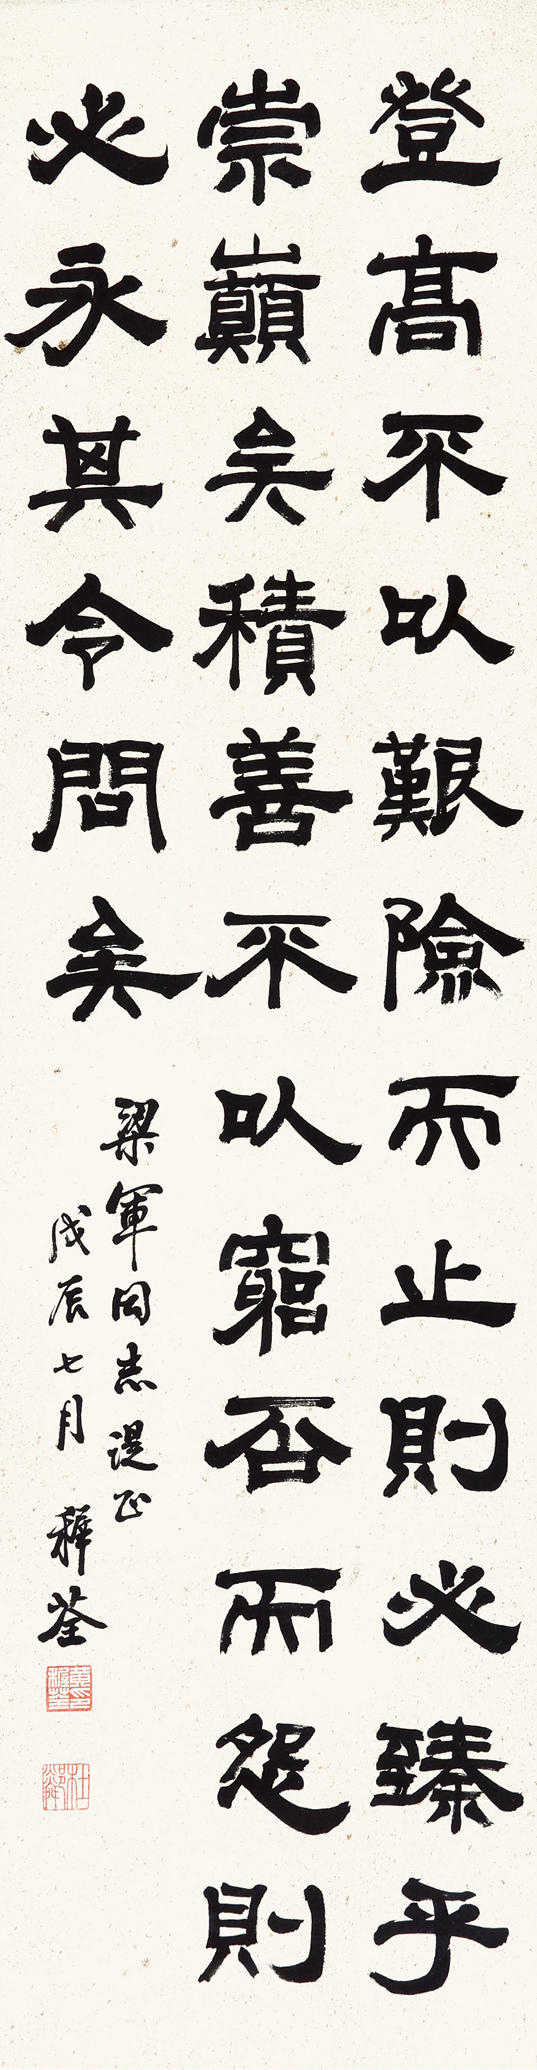 登高不以艱險而止則必臻乎
崇巔矣積善不以窮否而怨則
必永其令問矣
梁軍同志湜正
戊辰七月 穉荃